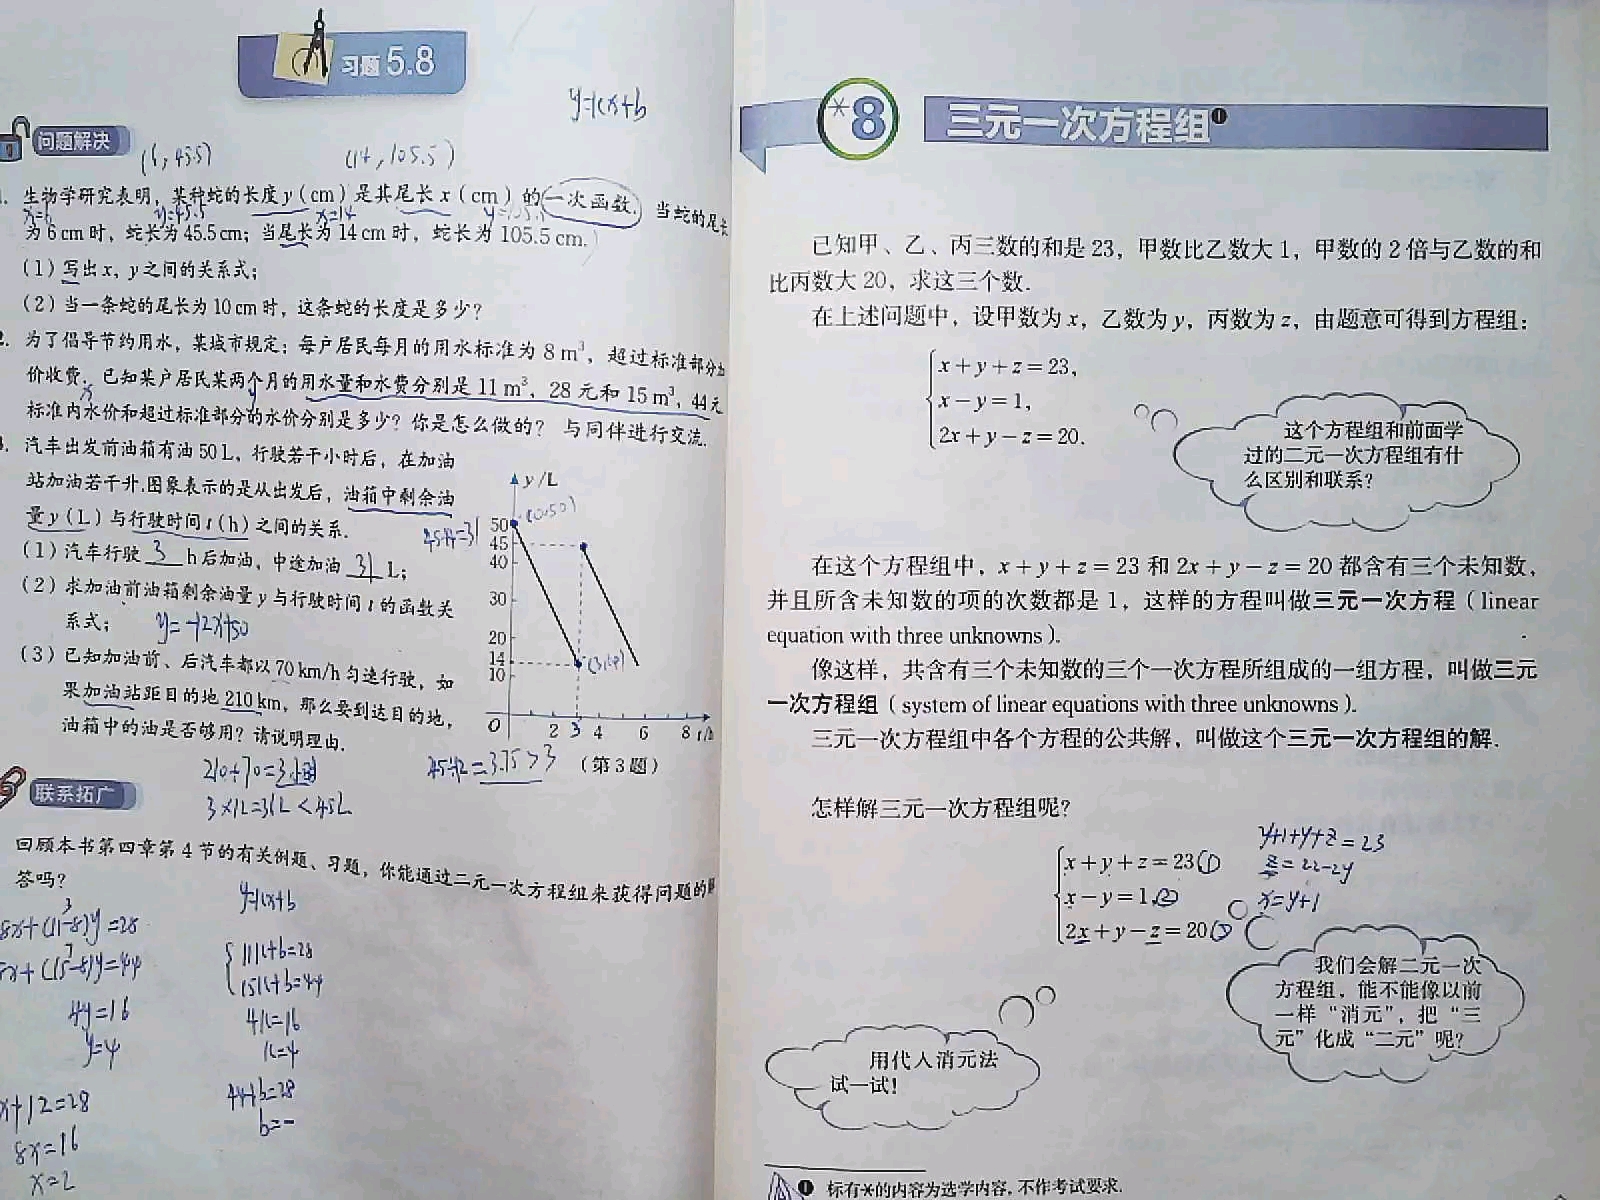 习题 5.8
y=kx+b
问题解决
(6,45.5)
(14,105.5)
生物学研究表明，某种蛇的长度 y（cm）是其尾长 x（cm）的一次函数. 当蛇的尾长
x=6 y=45.5 x=14 y=105.5
为 6 cm 时，蛇长为 45.5 cm；当尾长为 14 cm 时，蛇长为 105.5 cm.
（1）写出 x，y 之间的关系式；
（2）当一条蛇的尾长为 10 cm 时，这条蛇的长度是多少？
2. 为了倡导节约用水，某城市规定：每户居民每月的用水标准为 8 m³，超过标准部分加
价收费. 已知某户居民某两个月的用水量和水费分别是 11 m³，28 元和 15 m³，44 元
x y
标准内水价和超过标准部分的水价分别是多少？你是怎么做的？ 与同伴进行交流.
汽车出发前油箱有油 50 L，行驶若干小时后，在加油
站加油若干升.图象表示的是从出发后，油箱中剩余油
量 y（L）与行驶时间 t（h）之间的关系.
（1）汽车行驶 3 h 后加油，中途加油 31 L；
（2）求加油前油箱剩余油量 y 与行驶时间 t 的函数关
系式；
y=-12x+50
（3）已知加油前、后汽车都以 70 km/h 匀速行驶，如
果加油站距目的地 210 km，那么要到达目的地，
油箱中的油是否够用？请说明理由.
y/L
(0,50)
45-14=31
50
45
40
30
20
14
10
(3,14)
O 2 3 4 6 8 t/h
（第 3 题）
210÷70=3小时
3×12=36L<45L
45÷12=3.75>3
联系拓广
回顾本书第四章第 4 节的有关例题、习题，你能通过二元一次方程组来获得问题的解
答吗？
8x+(11-8)y=28
3
8x+(15-8)y=44
7
4y=16
y=4
x+12=28
8x=16
x=2
y=kx+b
11k+b=28
15k+b=44
4k=16
k=4
44+b=28
b=-
*8 三元一次方程组❶
已知甲、乙、丙三数的和是 23，甲数比乙数大 1，甲数的 2 倍与乙数的和
比丙数大 20，求这三个数.
在上述问题中，设甲数为 x，乙数为 y，丙数为 z，由题意可得到方程组：
x + y + z = 23,
x − y = 1,
2x + y − z = 20.
这个方程组和前面学
过的二元一次方程组有什
么区别和联系？
在这个方程组中，x + y + z = 23 和 2x + y − z = 20 都含有三个未知数，
并且所含未知数的项的次数都是 1，这样的方程叫做三元一次方程（linear
equation with three unknowns）.
像这样，共含有三个未知数的三个一次方程所组成的一组方程，叫做三元
一次方程组（system of linear equations with three unknowns）.
三元一次方程组中各个方程的公共解，叫做这个三元一次方程组的解.
怎样解三元一次方程组呢？
x + y + z = 23①
x − y = 1,②
2x + y − z = 20③
y+1+y+z=23
z=22-2y
x=y+1
我们会解二元一次
方程组，能不能像以前
一样“消元”，把“三
元”化成“二元”呢？
用代入消元法
试一试！
❶ 标有*的内容为选学内容，不作考试要求.